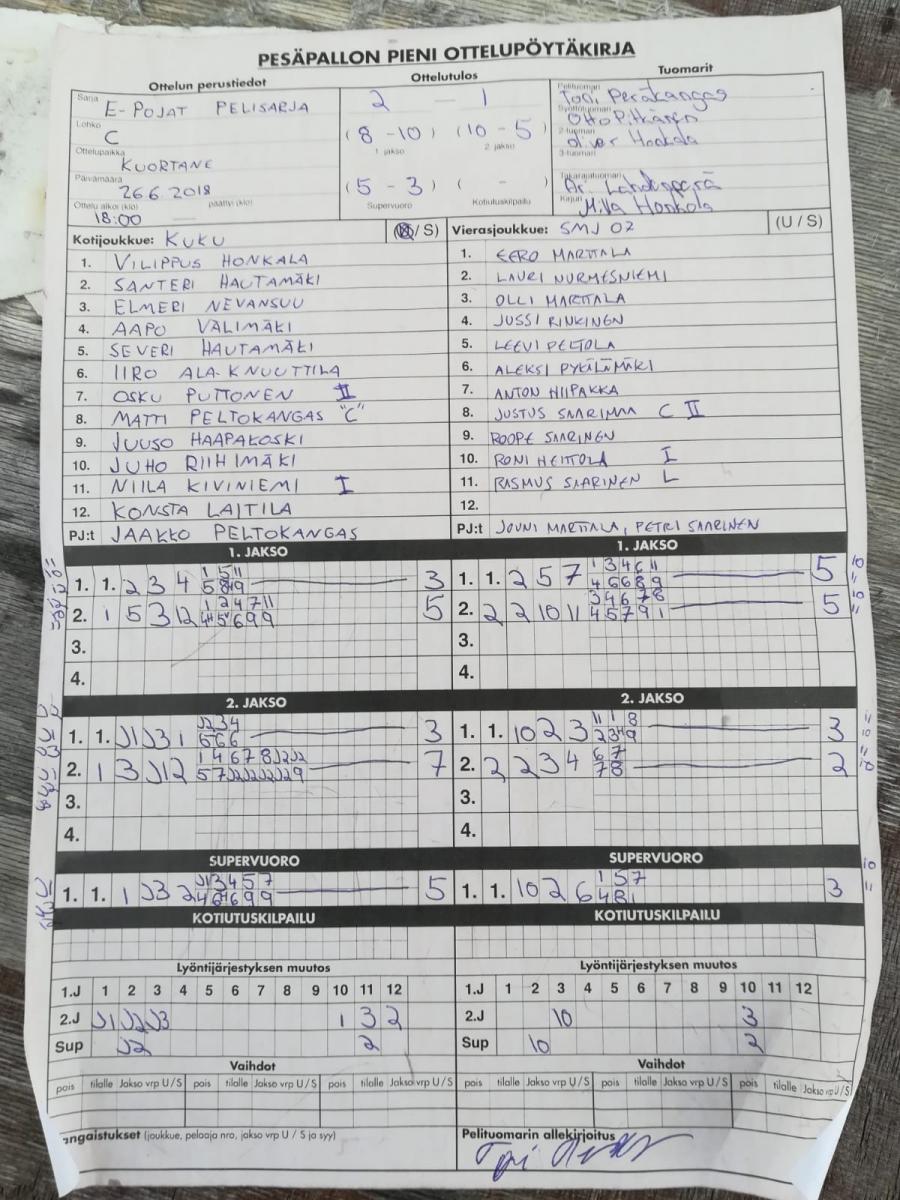 PESÄPALLON PIENI OTTELUPÖYTÄKIRJA
Ottelun perustiedot
Ottelutulos
Tuomarit
Sarja
E-POJAT PELISARJA
Lohko
C
Ottelupaikka
KUORTANE
Päivämäärä
26.6.2018
Ottelu alkoi (klo) päättyi (klo)
18:00
2 — 1
(8-10) (10-5)
1 jakso 2 jakso
(5-3) ( - )
Supervuoro Kotiutuskilpailu
Pelituomari
Toni Peräkangas
Syöttötuomari
Otto Pitkänen
2-tuomari
Oliver Honkala
3-tuomari
Takarajatuomari
Kirjuri
Milla Honkola
Kotijoukkue: KUKU (U / S)
1. VILIPPUS HONKALA
2. SANTERI HAUTAMÄKI
3. ELMERI NEVANSUU
4. AAPO VÄLIMÄKI
5. SEVERI HAUTAMÄKI
6. IIRO ALA-KNUUTTILA
7. OSKU PUTTONEN II
8. MATTI PELTOKANGAS "C"
9. JUUSO HAAPAKOSKI
10. JUHO RIIHIMÄKI
11. NIILA KIVINIEMI I
12. KONSTA LAITILA
PJ:t JAAKKO PELTOKANGAS
Vierasjoukkue: SMJ 07 (U / S)
1. EERO MARTTALA
2. LAURI NURMESNIEMI
3. OLLI MARTTALA
4. JUSSI RINKINEN
5. LEEVI PELTOLA
6. ALEKSI PYKÄLÄMÄKI
7. ANTON HIIPAKKA
8. JUSTUS SAARIMAA C II
9. ROOPE SAARINEN
10. RONI HEITTOLA I
11. RASMUS SAARINEN L
12.
PJ:t JOUNI MARTTALA, PETRI SAARINEN
1. JAKSO
1. 1. 2 3 4 3
2. 1 5 3 12 5
3.
4.
1. JAKSO
1. 1. 2 5 7 5
2. 2 2 10 11 5
3.
4.
2. JAKSO
1. 1. J1 J3 1 3
2. 1 3 J1 2 7
3.
4.
2. JAKSO
1. 1. 10 2 3 3
2. 2 2 3 4 2
3.
4.
SUPERVUORO
1. 1. 1 J3 2 5
SUPERVUORO
1. 1. 10 2 6 3
KOTIUTUSKILPAILU
KOTIUTUSKILPAILU
Lyöntijärjestyksen muutos
1.J 1 2 3 4 5 6 7 8 9 10 11 12
2.J J1 J2 J3 1 3 2
Sup J2 2
Lyöntijärjestyksen muutos
1.J 1 2 3 4 5 6 7 8 9 10 11 12
2.J 10 3
Sup 10 2
Vaihdot
pois tilalle Jakso vrp U / S pois tilalle Jakso vrp U / S pois tilalle Jakso vrp U / S
Vaihdot
pois tilalle Jakso vrp U / S pois tilalle Jakso vrp U / S pois tilalle Jakso vrp U / S
angaistukset (joukkue, pelaaja nro, jakso vrp U / S ja syy)
Pelituomarin allekirjoitus